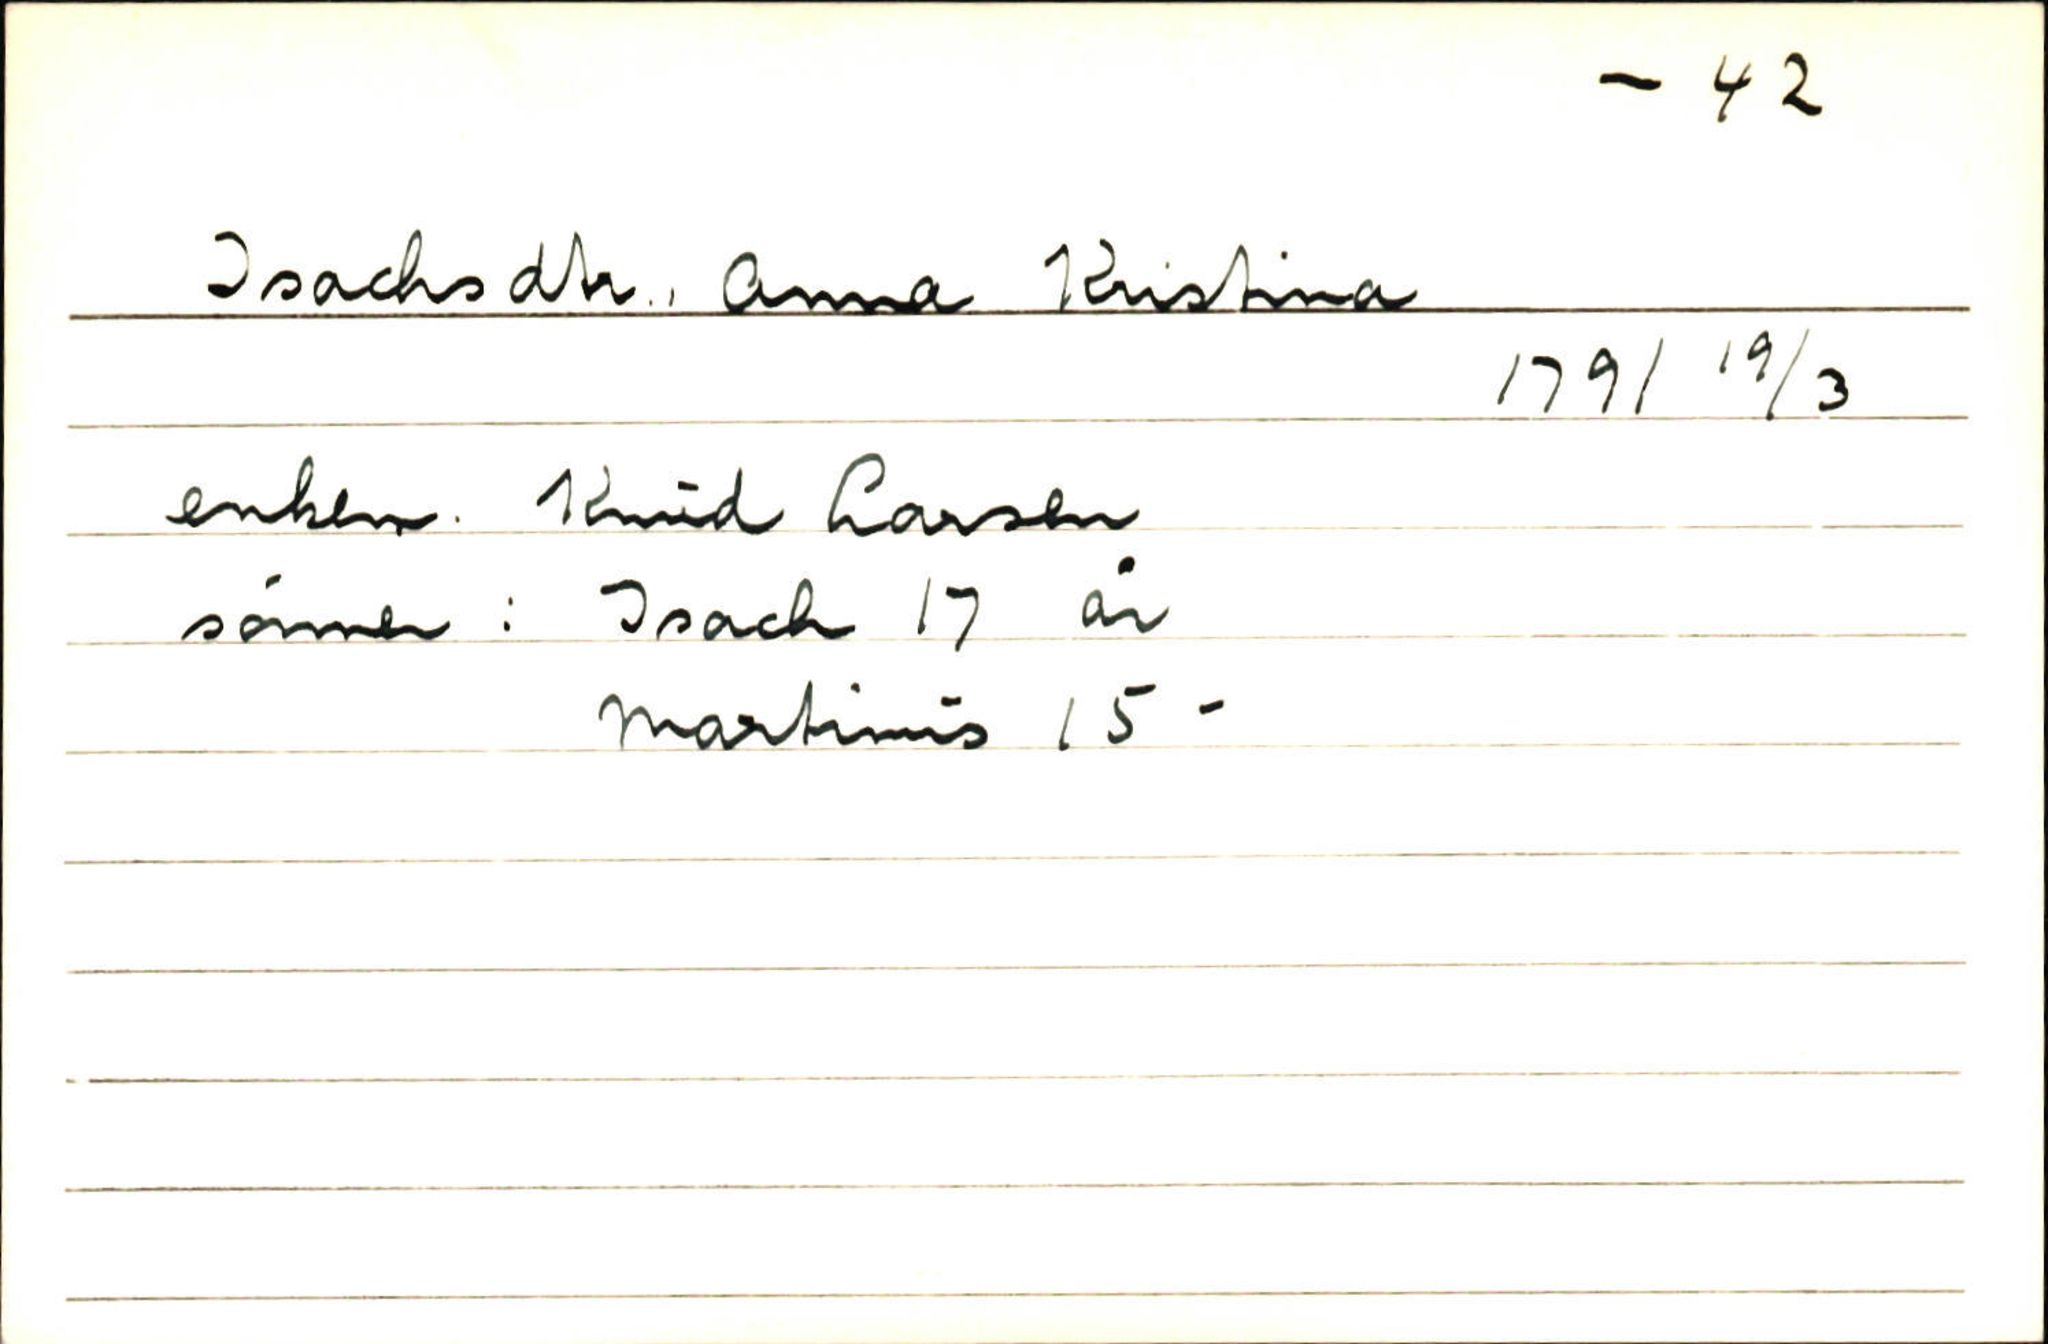 - 42
Isachsdtr., Anna Kristina
1791 19/3
enkem. Knud Larsen
sønner : Isach 17 år
Martinus 15 -